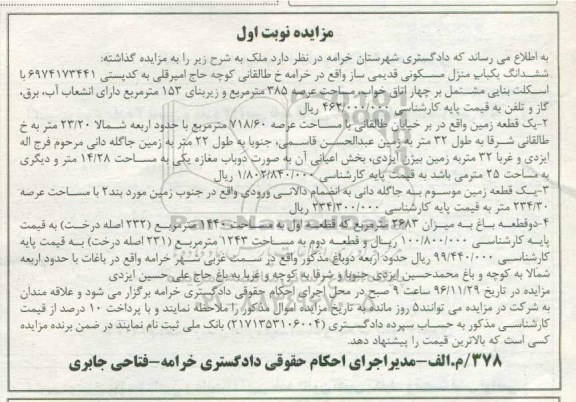 مزایده نوبت اول
به اطلاع می رساند که دادگستری شهرستان خرامه در نظر دارد ملک به شرح زیر را به مزایده گذاشته:
ششدانگ یکباب منزل مسکونی قدیمی ساز واقع در خرامه خ طالقانی کوچه حاج امیرقلی به کدپستی ۶۹۷۴۱۷۳۴۴۱ با
اسکلت بنایی مشتمل بر چهار اتاق خواب، مساحت عرصه ۳۸۵ مترمربع و زیربنای ۱۵۳ مترمربع دارای انشعاب آب، برق،
گاز و تلفن به قیمت پایه کارشناسی ۴۶۳/۰۰۰/۰۰۰ ریال
۲-یک قطعه زمین واقع در بر خیابان طالقانی با مساحت عرصه ۷۱۸/۶۰ مترمربع با حدود اربعه شمالا ۲۳/۲۰ متر به خ
طالقانی شرقا به طول ۳۲ متر به زمین عبدالحسین قاسمی، جنوبا به طول ۲۲ متر به زمین جاگله دانی مرحوم فرج اله
ایزدی و غربا ۳۲ متربه زمین بیژن ایزدی، بخش اعیانی آن به صورت دوباب مغازه یکی به مساحت ۱۴/۲۸ متر و دیگری
به مساحت ۲۵ مترمی باشد به قیمت پایه کارشناسی ۱/۸۰۲/۸۴۰/۰۰۰ ریال
۳-یک قطعه زمین موسوم به جاگله دانی به انضمام دالانی ورودی واقع در جنوب زمین مورد بند۲ با مساحت عرصه
۲۳۴/۳۰ متر به قیمت پایه کارشناسی ۲۳۴/۳۰۰/۰۰۰ ریال
۴-دوقطعه باغ به میزان ۲۶۸۳ مترمربع که قطعه اول به مساحت ۱۴۴۰ مترمربع (۲۳۲ اصله درخت) به قیمت
پایه کارشناسی ۱۰۰/۸۰۰/۰۰۰ ریال و قطعه دوم به مساحت ۱۲۴۳ مترمربع (۲۳۱ اصله درخت) به قیمت پایه
کارشناسی ۹۹/۴۴۰/۰۰۰ ریال حدود اربعه دوباغ مذکور واقع در سمت غربی شهر خرامه واقع در باغات با حدود اربعه
شمالا به کوچه و باغ محمدحسین ایزدی جنوبا و شرقا به کوچه و غربا به باغ حاج علی حسین ایزدی
مزایده در تاریخ ۹۶/۱۱/۲۹ ساعت ۹ صبح در محل اجرای احکام حقوقی دادگستری خرامه برگزار می شود و علاقه مندان
به شرکت در مزایده می توانند۵ روز مانده به تاریخ مزایده اموال مذکور را ملاحظه نمایند و با پرداخت ۱۰ درصد از قیمت
کارشناسی مذکور به حساب سپرده دادگستری (۲۱۷۱۳۵۳۱۰۶۰۰۴) بانک ملی ثبت نام نمایند در ضمن برنده مزایده
کسی است که بالاترین قیمت را پیشنهاد دهد.
۳۷۸/م.الف-مدیراجرای احکام حقوقی دادگستری خرامه-فتاحی جابری